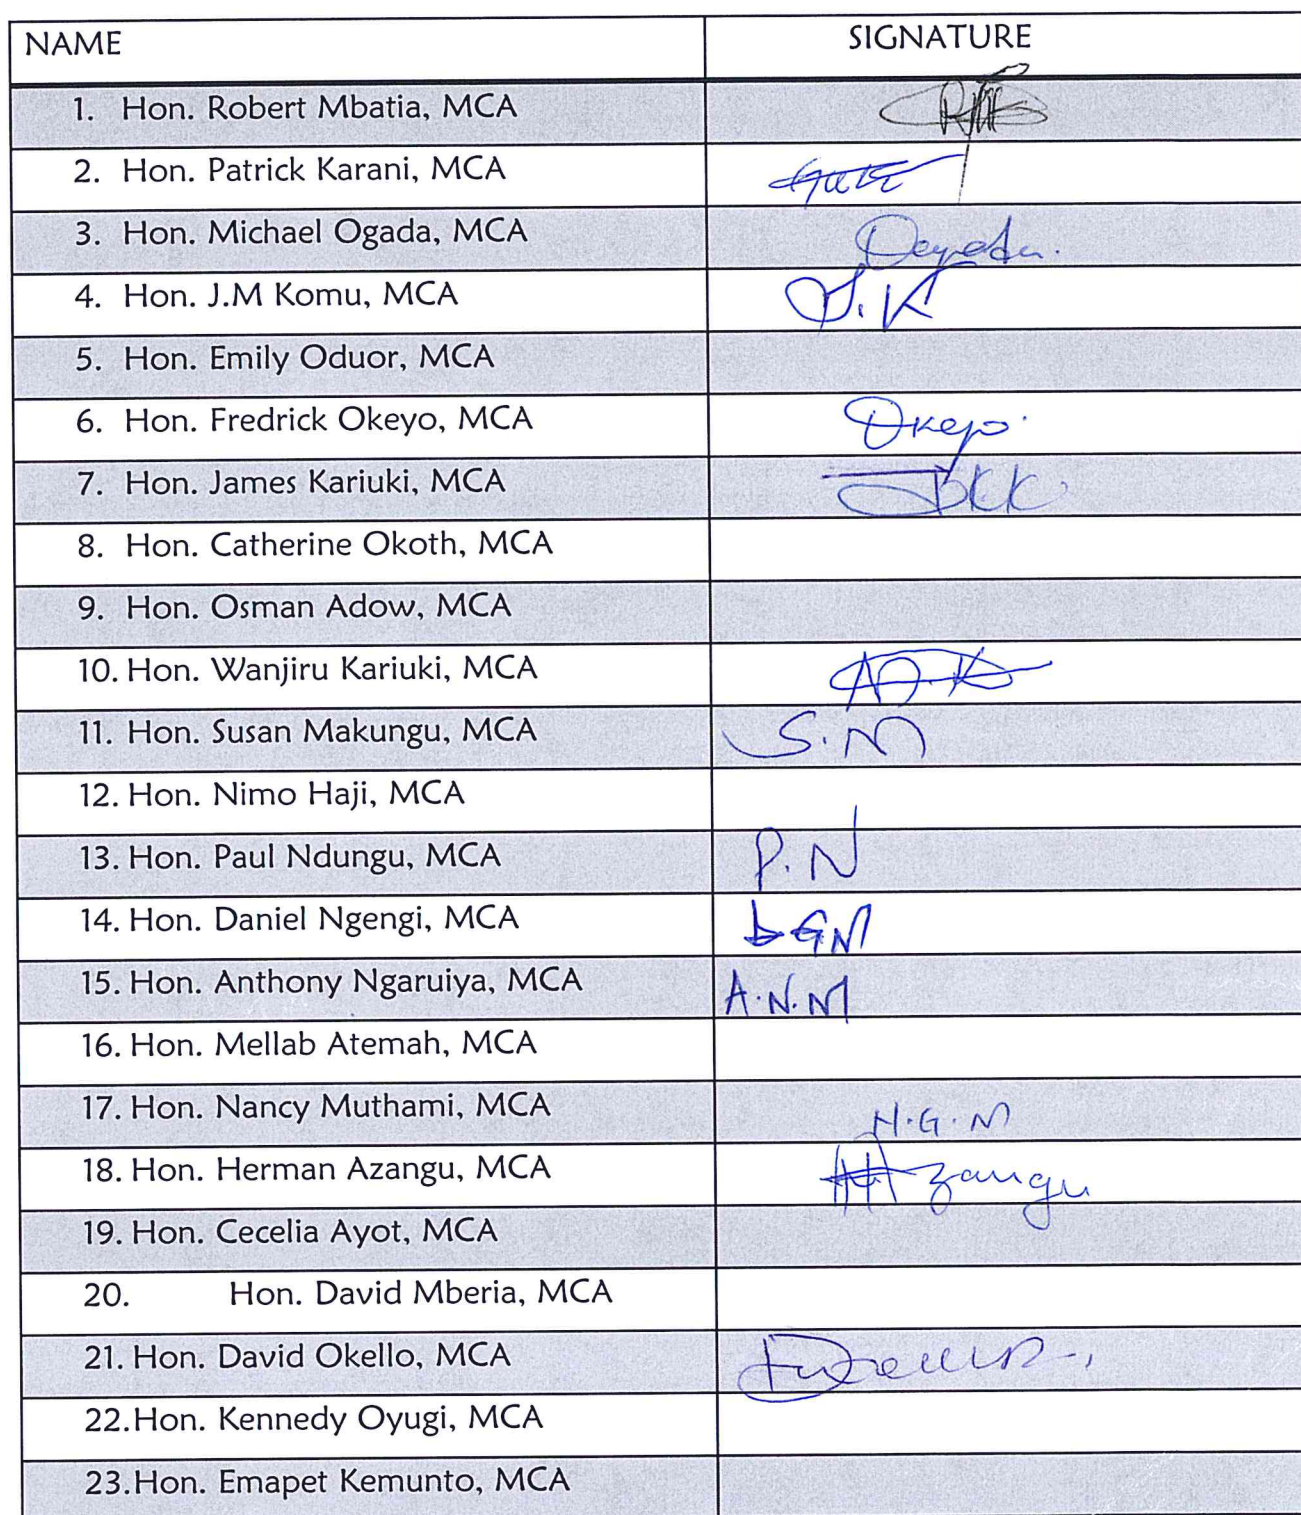 NAME SIGNATURE
1. Hon. Robert Mbatia, MCA
2. Hon. Patrick Karani, MCA
3. Hon. Michael Ogada, MCA
4. Hon. J.M Komu, MCA J.K
5. Hon. Emily Oduor, MCA
6. Hon. Fredrick Okeyo, MCA Okeyo
7. Hon. James Kariuki, MCA
8. Hon. Catherine Okoth, MCA
9. Hon. Osman Adow, MCA
10. Hon. Wanjiru Kariuki, MCA
11. Hon. Susan Makungu, MCA S.M
12. Hon. Nimo Haji, MCA
13. Hon. Paul Ndungu, MCA P.N
14. Hon. Daniel Ngengi, MCA DGN
15. Hon. Anthony Ngaruiya, MCA A.N.M
16. Hon. Mellab Atemah, MCA
17. Hon. Nancy Muthami, MCA N.G.M
18. Hon. Herman Azangu, MCA
19. Hon. Cecelia Ayot, MCA
20. Hon. David Mberia, MCA
21. Hon. David Okello, MCA
22.Hon. Kennedy Oyugi, MCA
23.Hon. Emapet Kemunto, MCA